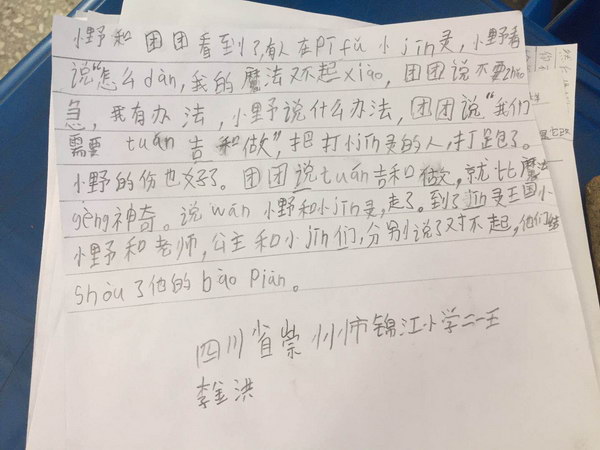 小野和团团看到了,有人在Pī fǔ 小jīn灵,小野看
说"怎么dàn,我的魔法又不起xiào,团团说不要zháo
急,我有办法,小野说什么办法,团团说"我们
需要 tuán 吉 和做",把打小jīn灵的人,打足包了。
小野的伤也好了。团团说tuán吉和做,就比魔法
gèng神奇。说wán 小野和小jīn灵,走了。到了jīn灵王国小
小野和老师,公主和小jīn们,分别说了对不起,他们
shòu了他的bào Piàn。
四川省崇州市锦江小学二一王
李金洪